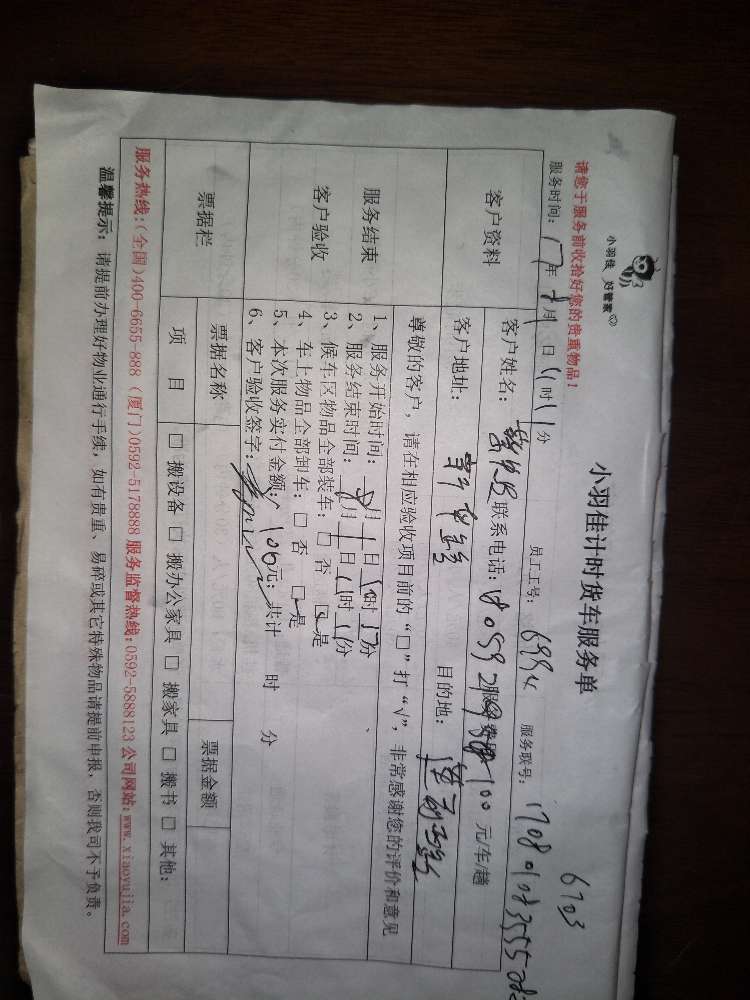 小羽佳 好管家
小羽佳计时货车服务单
6703
请您于服务前收拾好您的贵重物品！
服务时间：17年8月1日11时11分 员工工号：6994 服务联号：
客户资料
客户姓名： 联系电话： 服务费用100元/车/趟
客户地址： 目的地：
尊敬的客户，请在相应验收项目前的“□”打“√”，非常感谢您的评价和意见
服务结束
客户验收
1、服务开始时间：8月1日10时17分
2、服务结束时间：8月1日11时11分
3、候车区物品全部装车：□ 否 □ 是
4、车上物品全部卸车：□ 否 □ 是
5、本次服务实付金额：100元；共计 时 分
6、客户验收签字：
票据栏
票据名称 票据金额
项 目 □ 搬设备 □ 搬办公家具 □ 搬家具 □ 搬书 □ 其他：
服务热线：(全国)400-6655-888 (厦门)0592-5178888 服务监督热线：0592-5888123 公司网站：www.xiaoyujia.com
温馨提示：请提前办理好物业通行手续，如有贵重、易碎或其它特殊物品请提前申报，否则我司不予负责。